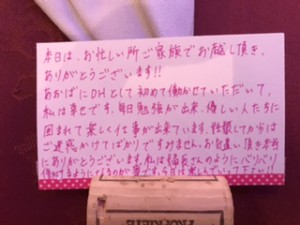 本日は、お忙しい所ご家族でお越し頂き、
ありがとうございます!!
あおばにDHとして初めて働かせていただいて、
私は幸せです。毎日勉強が出来、優しい人たちに
囲まれて楽しく仕事が出来ています。
ご迷惑かけてばかりですみません。お気遣い頂き本当
にありがとうございます。私は福長さんのようにバリバリ